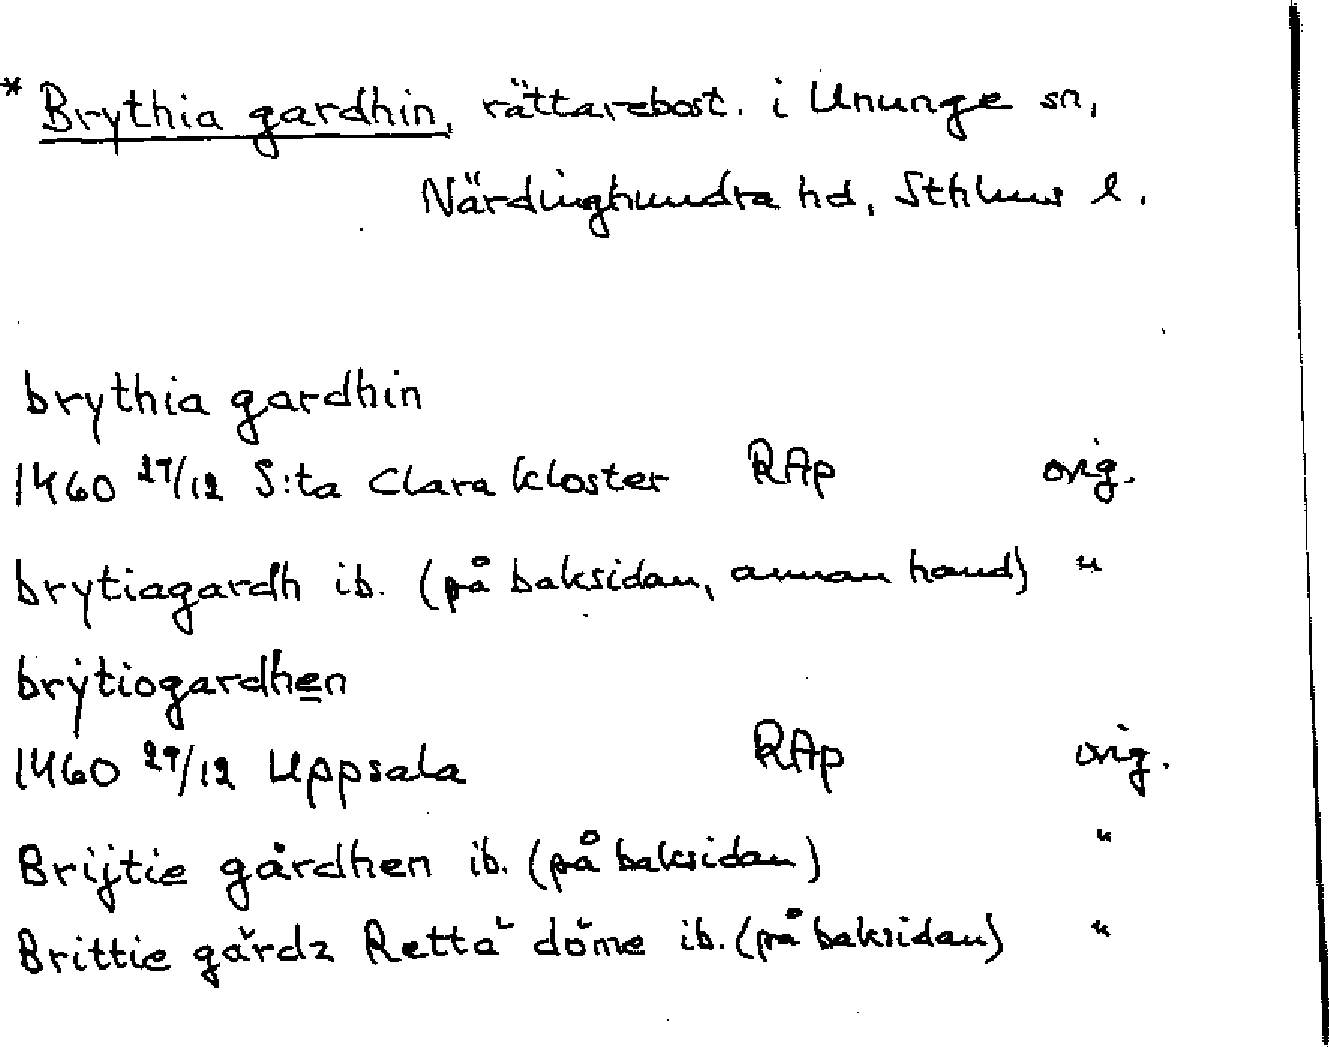 * Brythia gardhin, rättarebost. i Ununge sn,
Närdinghundra hd, Sthlms l.
brythia gardhin
1460 27/12 S:ta Clara kloster RAp orig.
brytiagardh ib. (på baksidan, annan hand) "
brẏtiogardhen
1460 29/12 Uppsala RAp orig.
Brijtie gårdhen ib. (på baksidan) "
Brittie gårdz Retta döme ib. (på baksidan) "